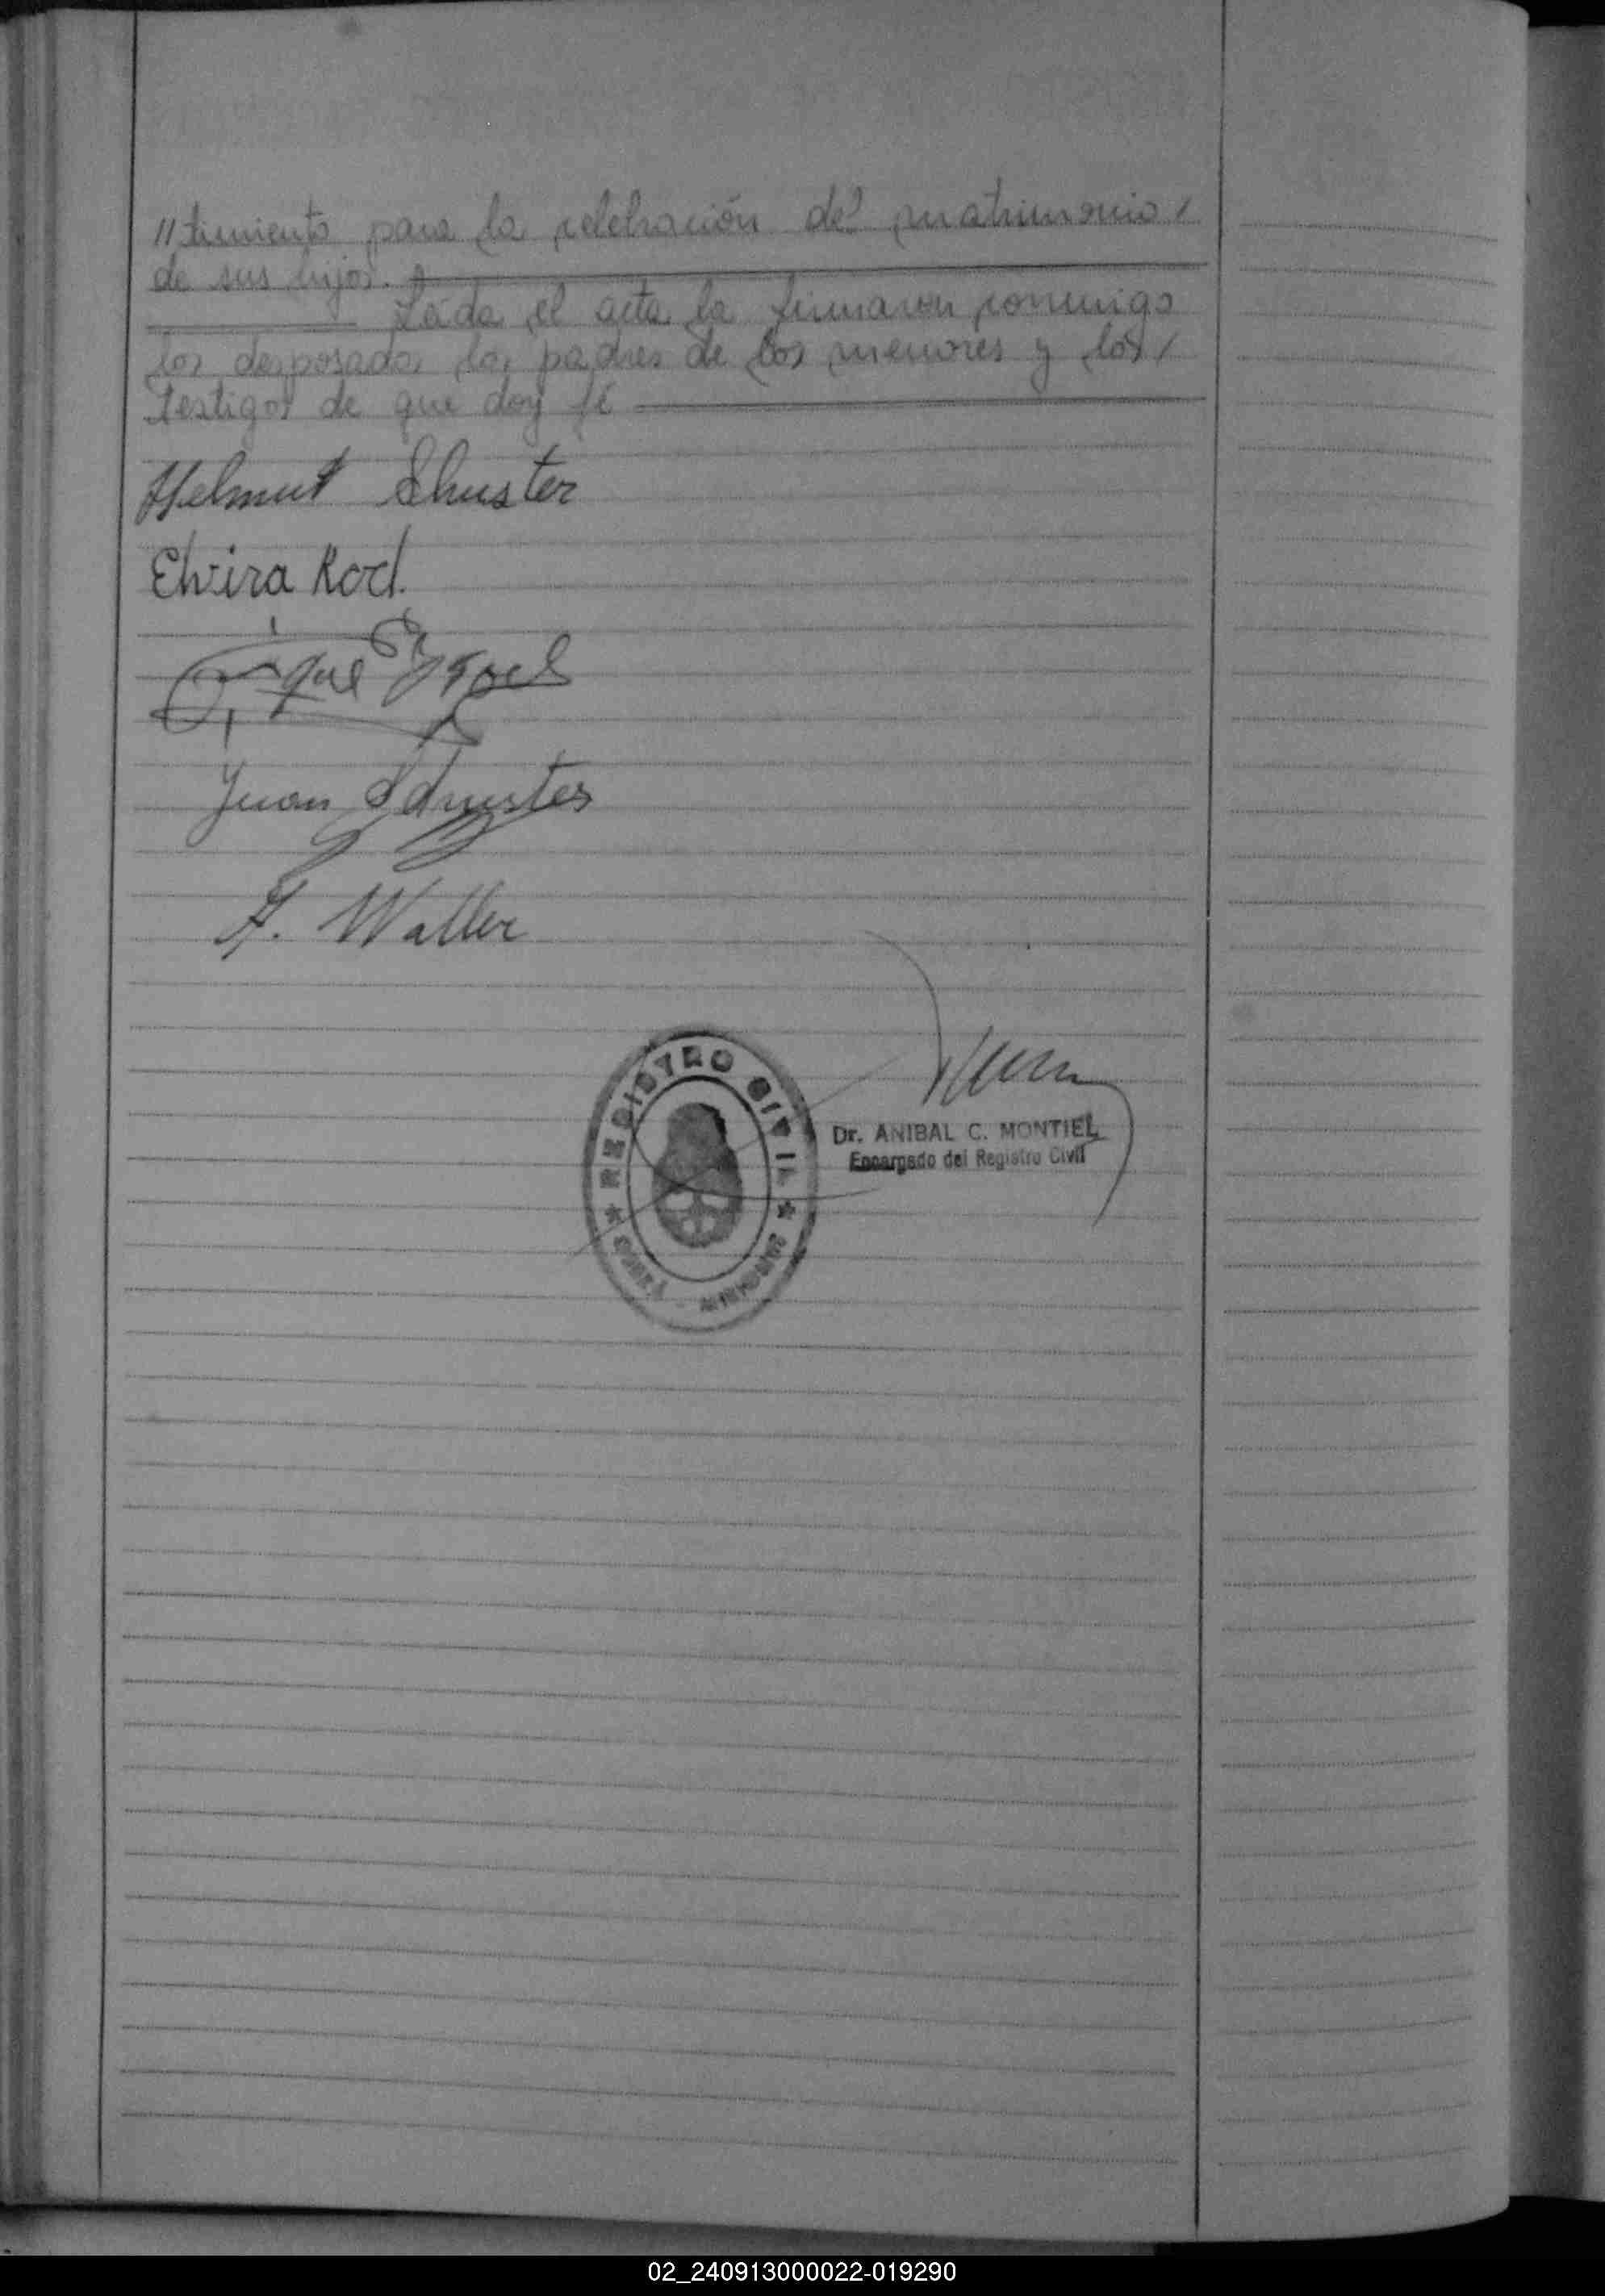 //timiento para la celebración del matrimonio/
de sus hijos.
Leída el acta la firmaron conmigo
los desposados los padres de los menores y los/
testigos de que doy fé
Helmut Shuster
Elvira Rod.
Juan Schuster
F. Waller
REGISTRO CIVIL
MISIONES
Dr. ANIBAL C. MONTIEL
Encargado del Registro Civil
02_240913000022-019290